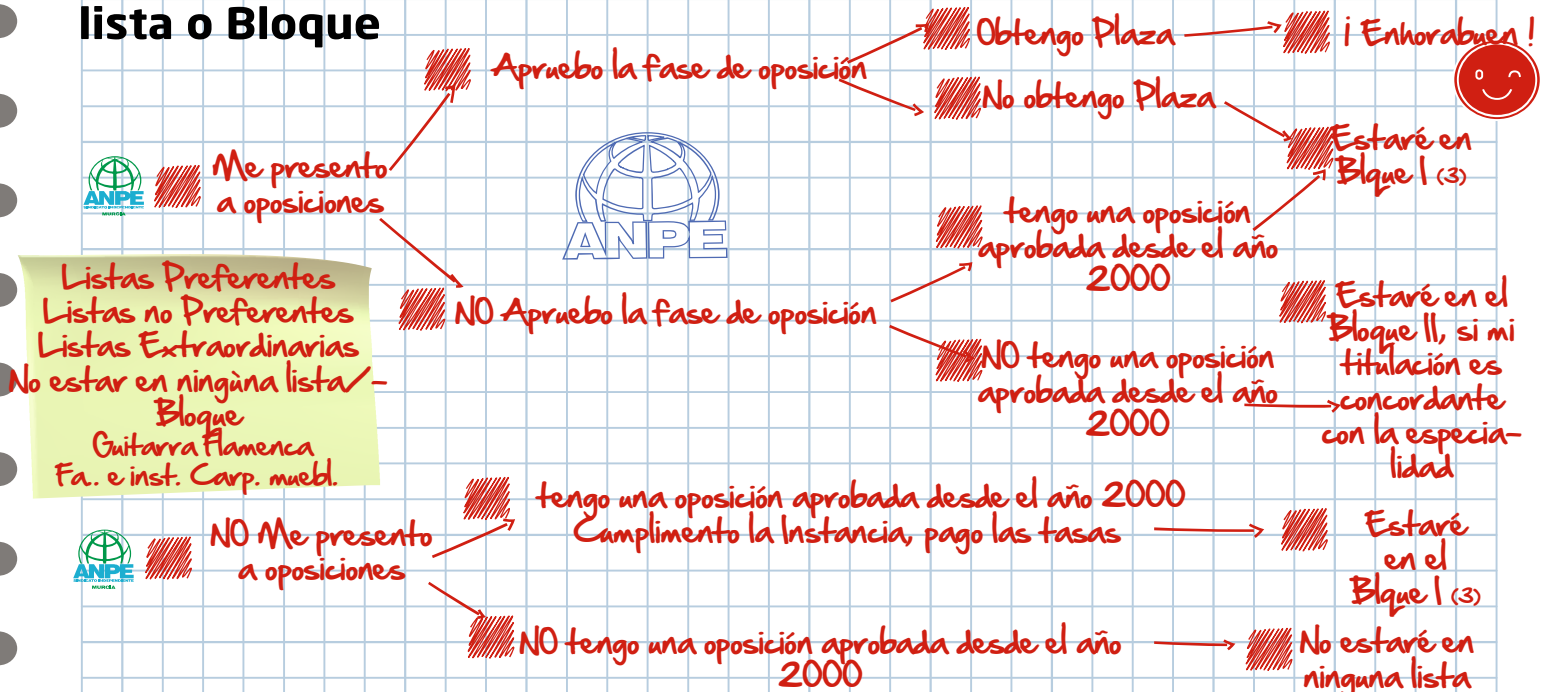 lista o Bloque
Apruebo la fase de oposición
Obtengo Plaza
¡ Enhorabuen !
No obtengo Plaza
Estaré en
Blque I (3)
Me presento
a oposiciones
ANPE
MURCIA
ANPE
tengo una oposición
aprobada desde el año
2000
NO Apruebo la fase de oposición
NO tengo una oposición
aprobada desde el año
2000
Estaré en el
Bloque II, si mi
titulación es
concordante
con la especia-
lidad
Listas Preferentes
Listas no Preferentes
Listas Extraordinarias
No estar en ningùna lista/-
Bloque
Guitarra Flamenca
Fa.. e inst. Carp. muebl.
NO Me presento
a oposiciones
ANPE
MURCIA
tengo una oposición aprobada desde el año 2000
Cumplimento la Instancia, pago las tasas
Estaré
en el
Blque I (3)
NO tengo una oposición aprobada desde el año
2000
No estaré en
ninguna lista